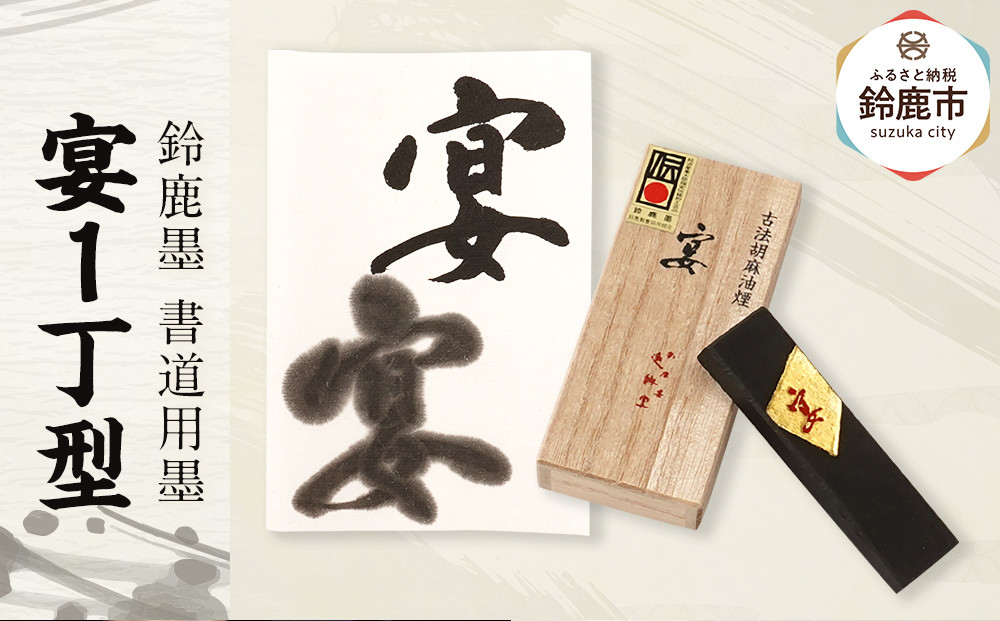 宴1丁型
鈴鹿墨 書道用墨
宴
宴
伝
鈴鹿墨
宴
古法胡麻油煙
ふるさと納税
鈴鹿市
suzuka city